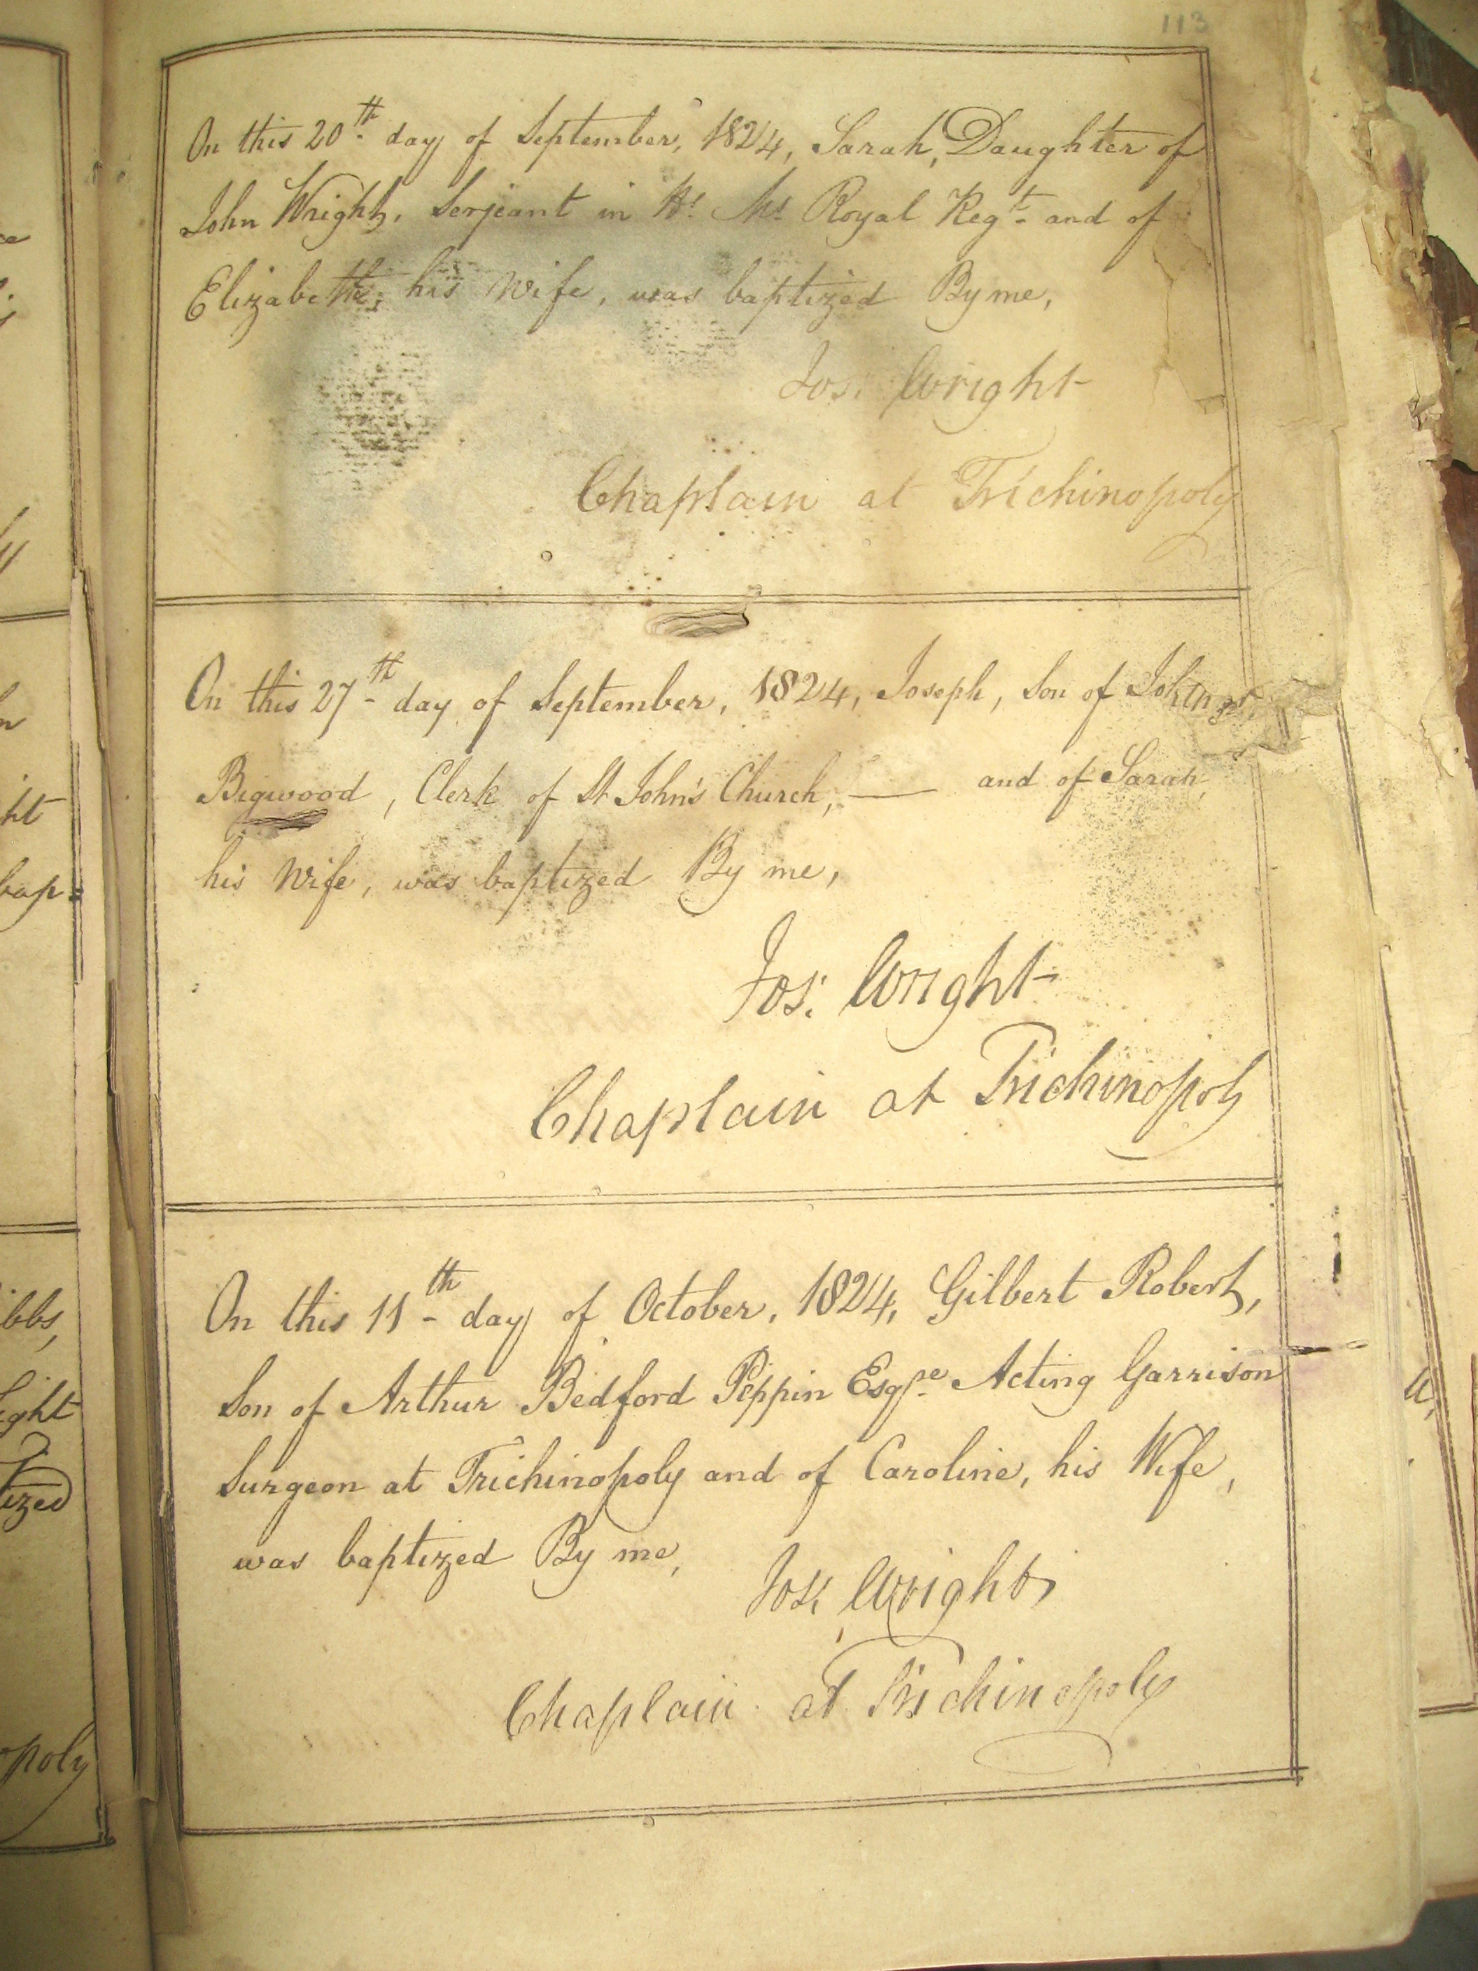 113
On this 20th day of September, 1824, Sarah, Daughter of
John Wright, Serjeant in H's M's Royal Regt and of
Elizabeth, his Wife, was baptized By me,
Jos: Wright
Chaplain at Trichinopoly
On this 27th day of September, 1824, Joseph, Son of
Bigwood, Clerk of St John's Church, — and of Sarah,
his Wife, was baptized By me,
Jos: Wright
Chaplain at Trichinopoly
On this 11th day of October, 1824, Gilbert Robert,
Son of Arthur Bedford Peppin Esqre Acting Garrison
Surgeon at Trichinopoly and of Caroline, his Wife,
was baptized By me,
Jos: Wright
Chaplain at Trichinopoly